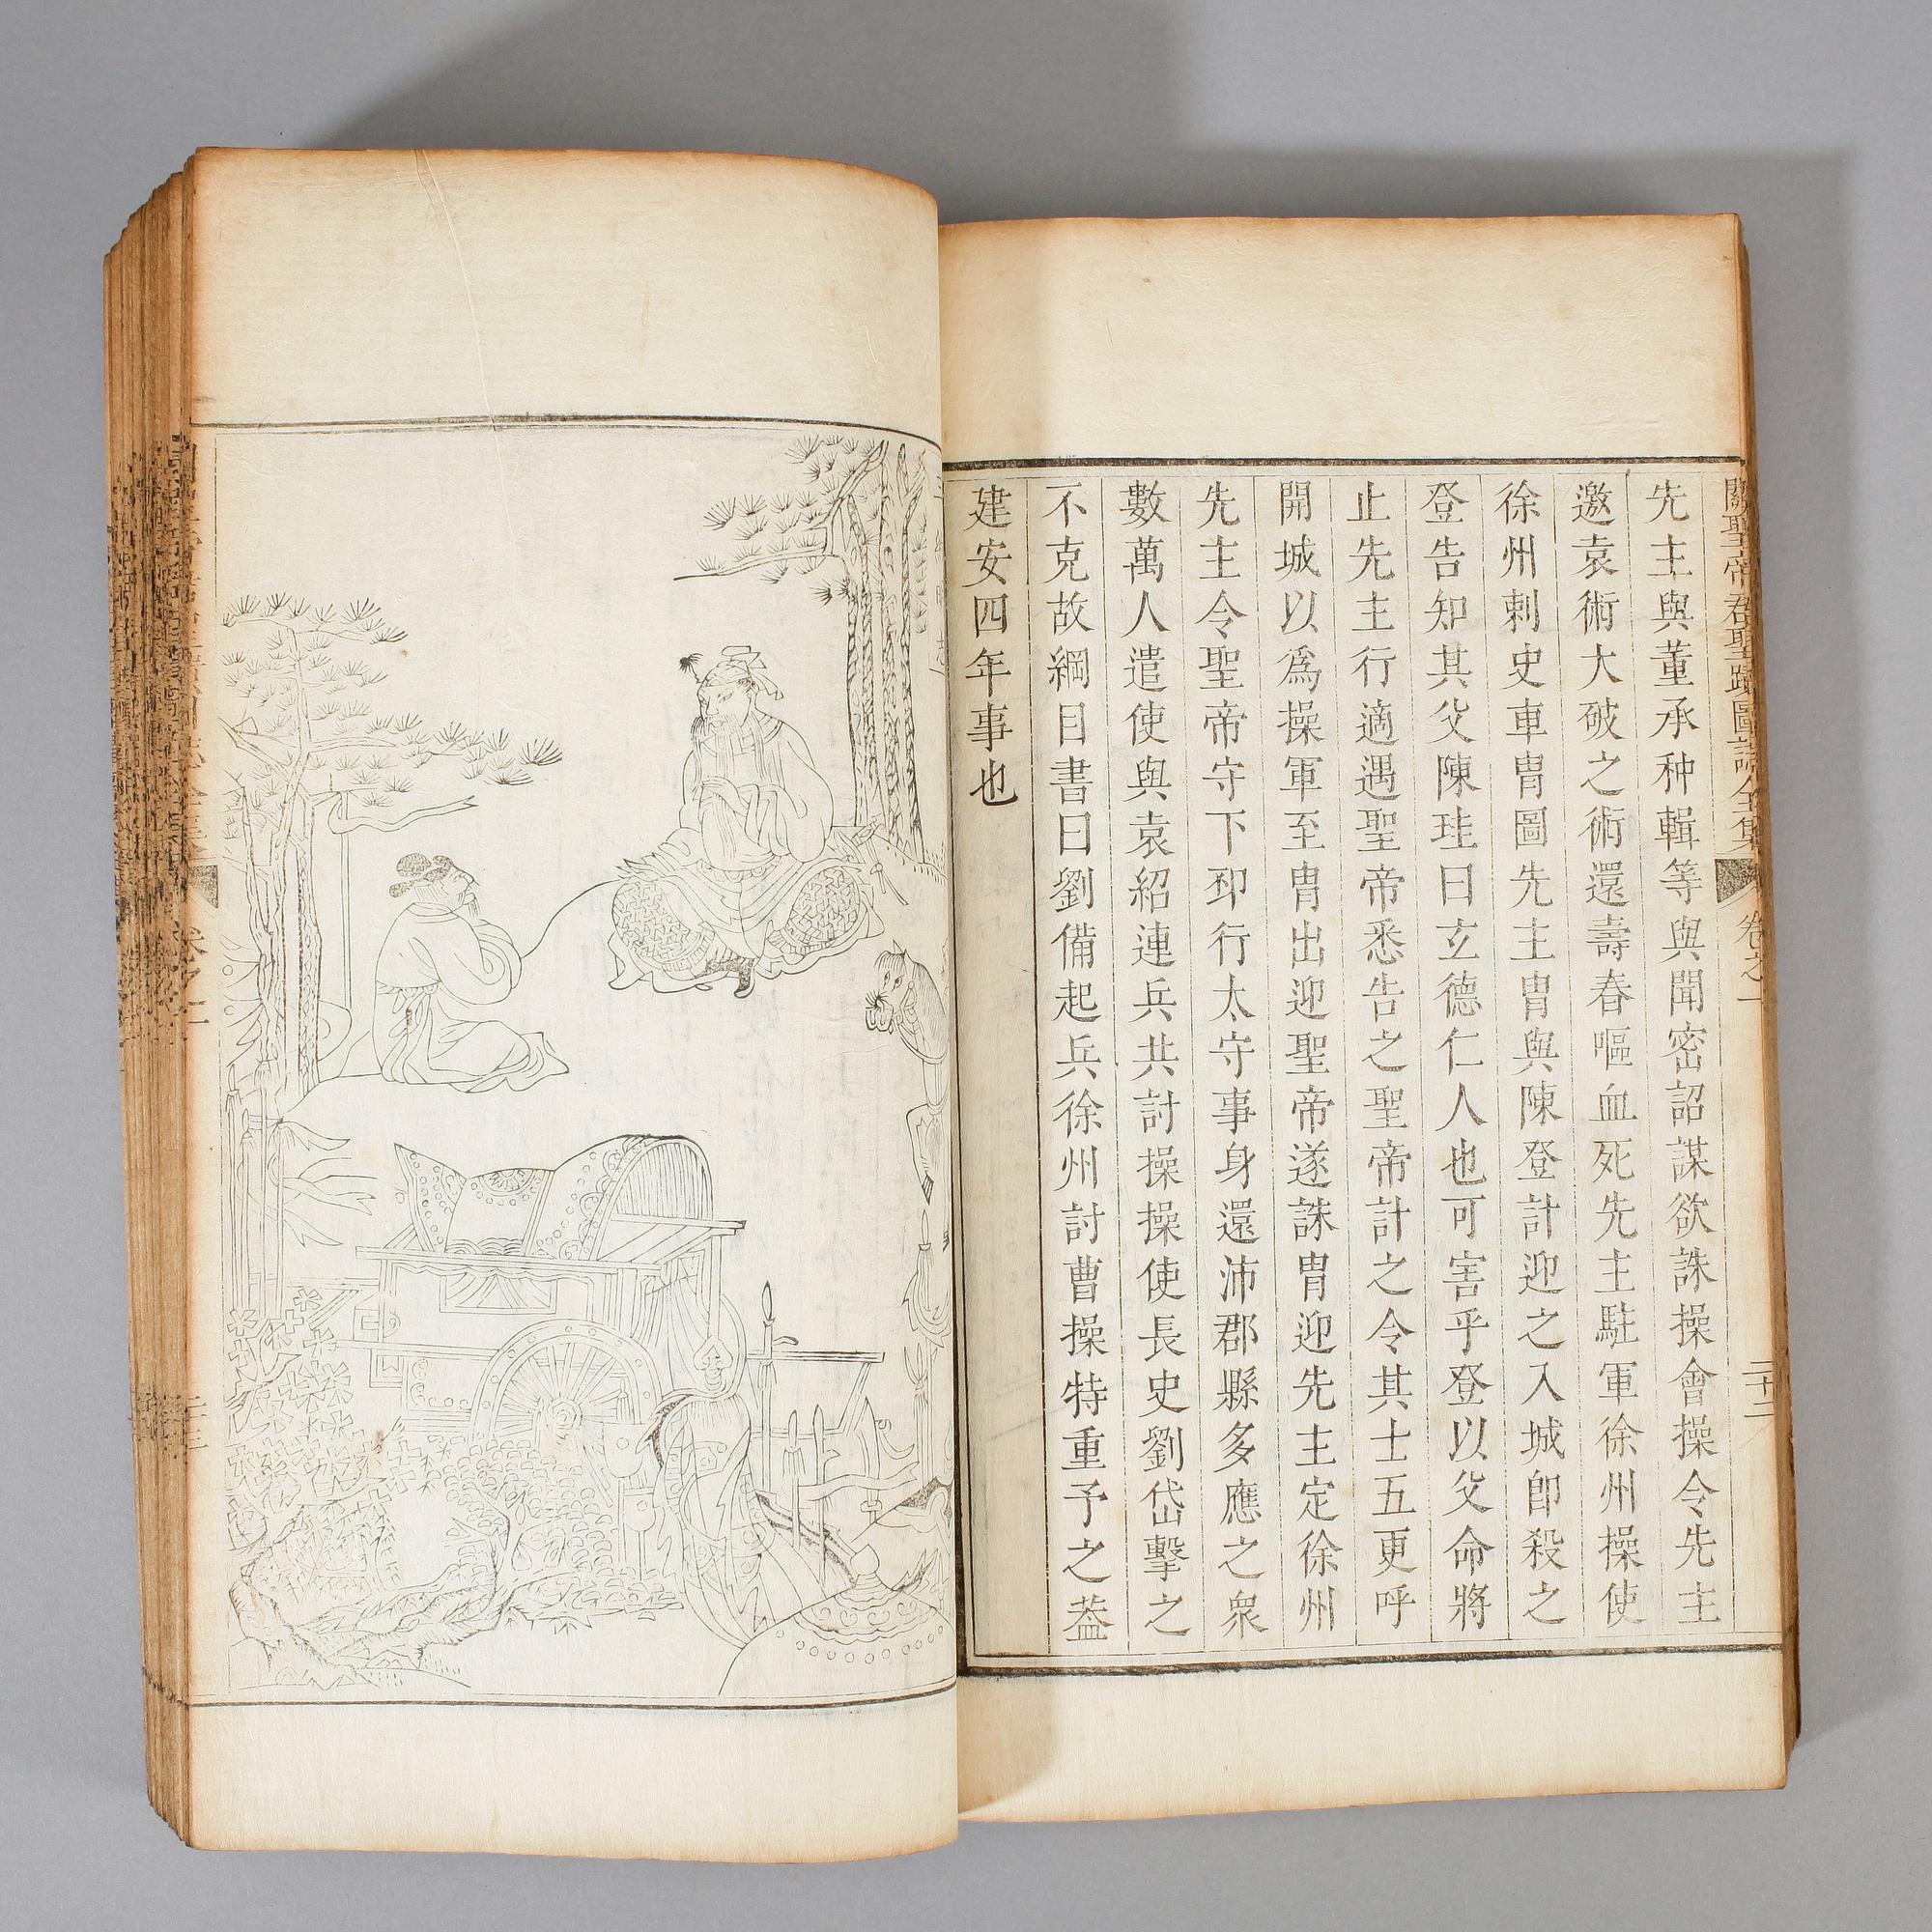 關聖帝君聖蹟圖誌全集
卷之一
二十二
先主與董承种輯等與聞密詔謀欲誅操會操令先主
邀袁術大破之術還壽春嘔血死先主駐軍徐州操使
徐州刺史車胄圖先主胄與陳登計迎之入城卽殺之
登告知其父陳珪曰玄德仁人也可害乎登以父命將
止先主行適遇聖帝悉告之聖帝計之令其士五更呼
開城以爲操軍至胄出迎聖帝遂誅胄迎先主定徐州
先主令聖帝守下邳行太守事身還沛郡縣多應之衆
數萬人遣使與袁紹連兵共討操操使長史劉岱擊之
不克故綱目書曰劉備起兵徐州討曹操特重予之葢
建安四年事也